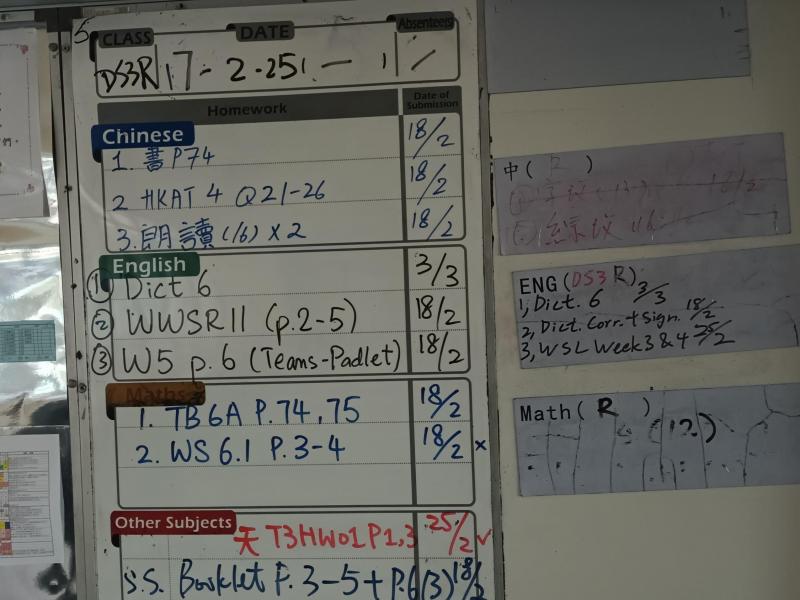 5
CLASS DATE Absentees
DS3R 17-2-25 1 - 1 /
Homework Date of Submission
Chinese
1. 書 P74 18/2
2 HKAT 4 Q21-26 18/2
3. 朗讀 (1/6) x 2 18/2
English
① Dict 6 3/3
② WWSR11 (p.2-5) 18/2
③ W5 p.6 (Teams-Padlet) 18/2
Maths
1. TB6A P.74,75 18/2
2. WS 6.1 P.3-4 18/2 x
Other Subjects
天 T3HW01P1,3 25/2 ✓
S.S. Booklet P.3-5+P.6(3) 18/2
中( )
18/2
ENG (DS3R)
1, Dict. 6 3/3
2, Dict. Corr. + Sign. 18/2
3, WSL Week 3 & 4 25/2
Math ( R )
(12)